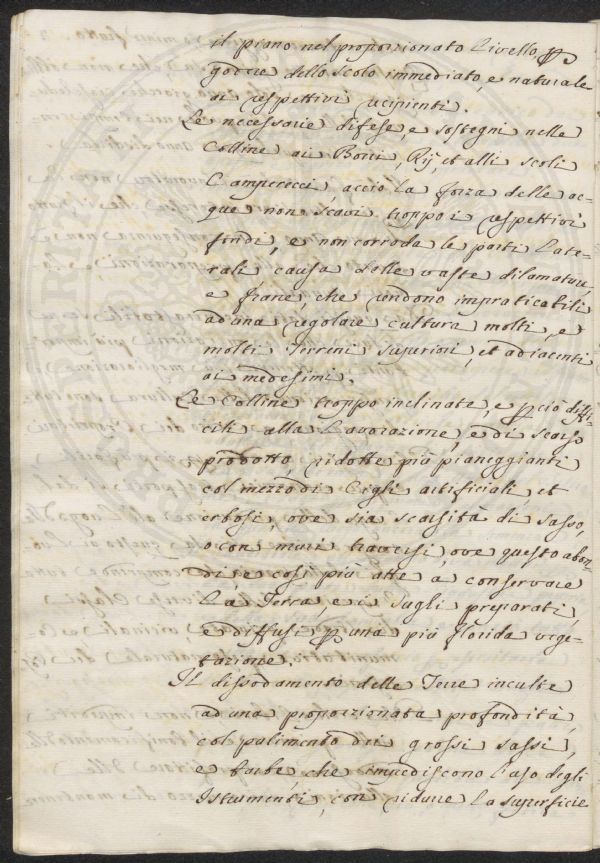 il piano nel proporzionato Livello, p
godere dello scolo immediato, e naturale
ai respettivi recipienti.
Le necessarie difese, e sostegni nelle
Colline ai Borri, Rij, et alli scoli
Camperecci, acciò la forza delle ac-
que non scavi troppo i respettivi
fondi, e non corroda le parti Late-
rali causa delle vaste dilamature,
e frane, che rendono impraticabili
ad una regolare cultura molti, e
molti Terreni superiori, et adiacenti
ai medesimi.
Le Colline troppo inclinate, e pciò diffi-
cili alla Lavorazione, e di scarso
prodotto, ridotte più pianeggianti
col mezzo di Cigli artificiali, et
erbosi, ove sia scarsità di sasso,
o con muri traversi, ove questo abon-
di, e così più atte a conservare
La Terra, e i sughi preparati,
e diffusi p una più florida vege-
tazione.
Il dissodamento delle Terre inculte
ad una proporzionata profondità,
col palimento dei grossi sassi,
e barbe, che impediscono l'uso degli
Istrumenti, con ridurre La superficie